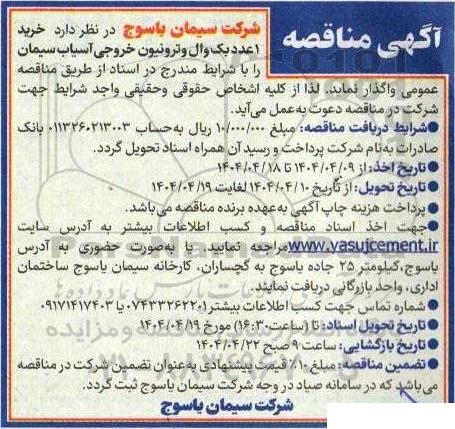 آگهی مناقصه
شرکت سیمان یاسوج در نظر دارد خرید
۱عدد بک وال وترونیون خروجی آسیاب سیمان
را با شرایط مندرج در اسناد از طریق مناقصه
عمومی واگذار نماید. لذا از کلیه اشخاص حقوقی وحقیقی واجد شرایط جهت
شرکت در مناقصه دعوت به‌عمل می‌آید.
●شرایط دریافت مناقصه: مبلغ ۱۰/۰۰۰/۰۰۰ ریال به‌حساب ۰۱۱۳۲۶۰۲۱۳۰۰۳ بانک
صادرات به‌نام شرکت پرداخت و رسید آن همراه اسناد تحویل گردد.
●تاریخ اخذ: از ۱۴۰۴/۰۴/۰۹ تا ۱۴۰۴/۰۴/۱۸
●تاریخ تحویل: از تاریخ ۱۴۰۴/۰۴/۱۰ لغایت ۱۴۰۴/۰۴/۱۹
● پرداخت هزینه چاپ آگهی به‌عهده برنده مناقصه می‌باشد.
●جهت اخذ اسناد مناقصه و کسب اطلاعات بیشتر به آدرس سایت
www.yasujcement.ir مراجعه نمایید یا به‌صورت حضوری به آدرس
یاسوج،کیلومتر ۳۵ جاده یاسوج به گچساران، کارخانه سیمان یاسوج ساختمان
اداری، واحد بازرگانی دریافت نمایند.
● شماره تماس جهت کسب اطلاعات بیشتر ۰۷۴۳۳۳۶۲۲۰۱ یا ۰۹۱۷۱۴۱۷۴۰۳
●تاریخ تحویل اسناد: تا (ساعت۱۶:۳۰) مورخ ۱۴۰۴/۰۴/۱۹
●تاریخ بازگشایی: ساعت ۹ صبح ۱۴۰۴/۰۴/۲۲
●تضمین مناقصه: مبلغ ۱۰٪ قیمت پیشنهادی به‌عنوان تضمین شرکت در مناقصه
می‌باشد که در سامانه صیاد در وجه شرکت سیمان یاسوج ثبت گردد.
شرکت سیمان یاسوج